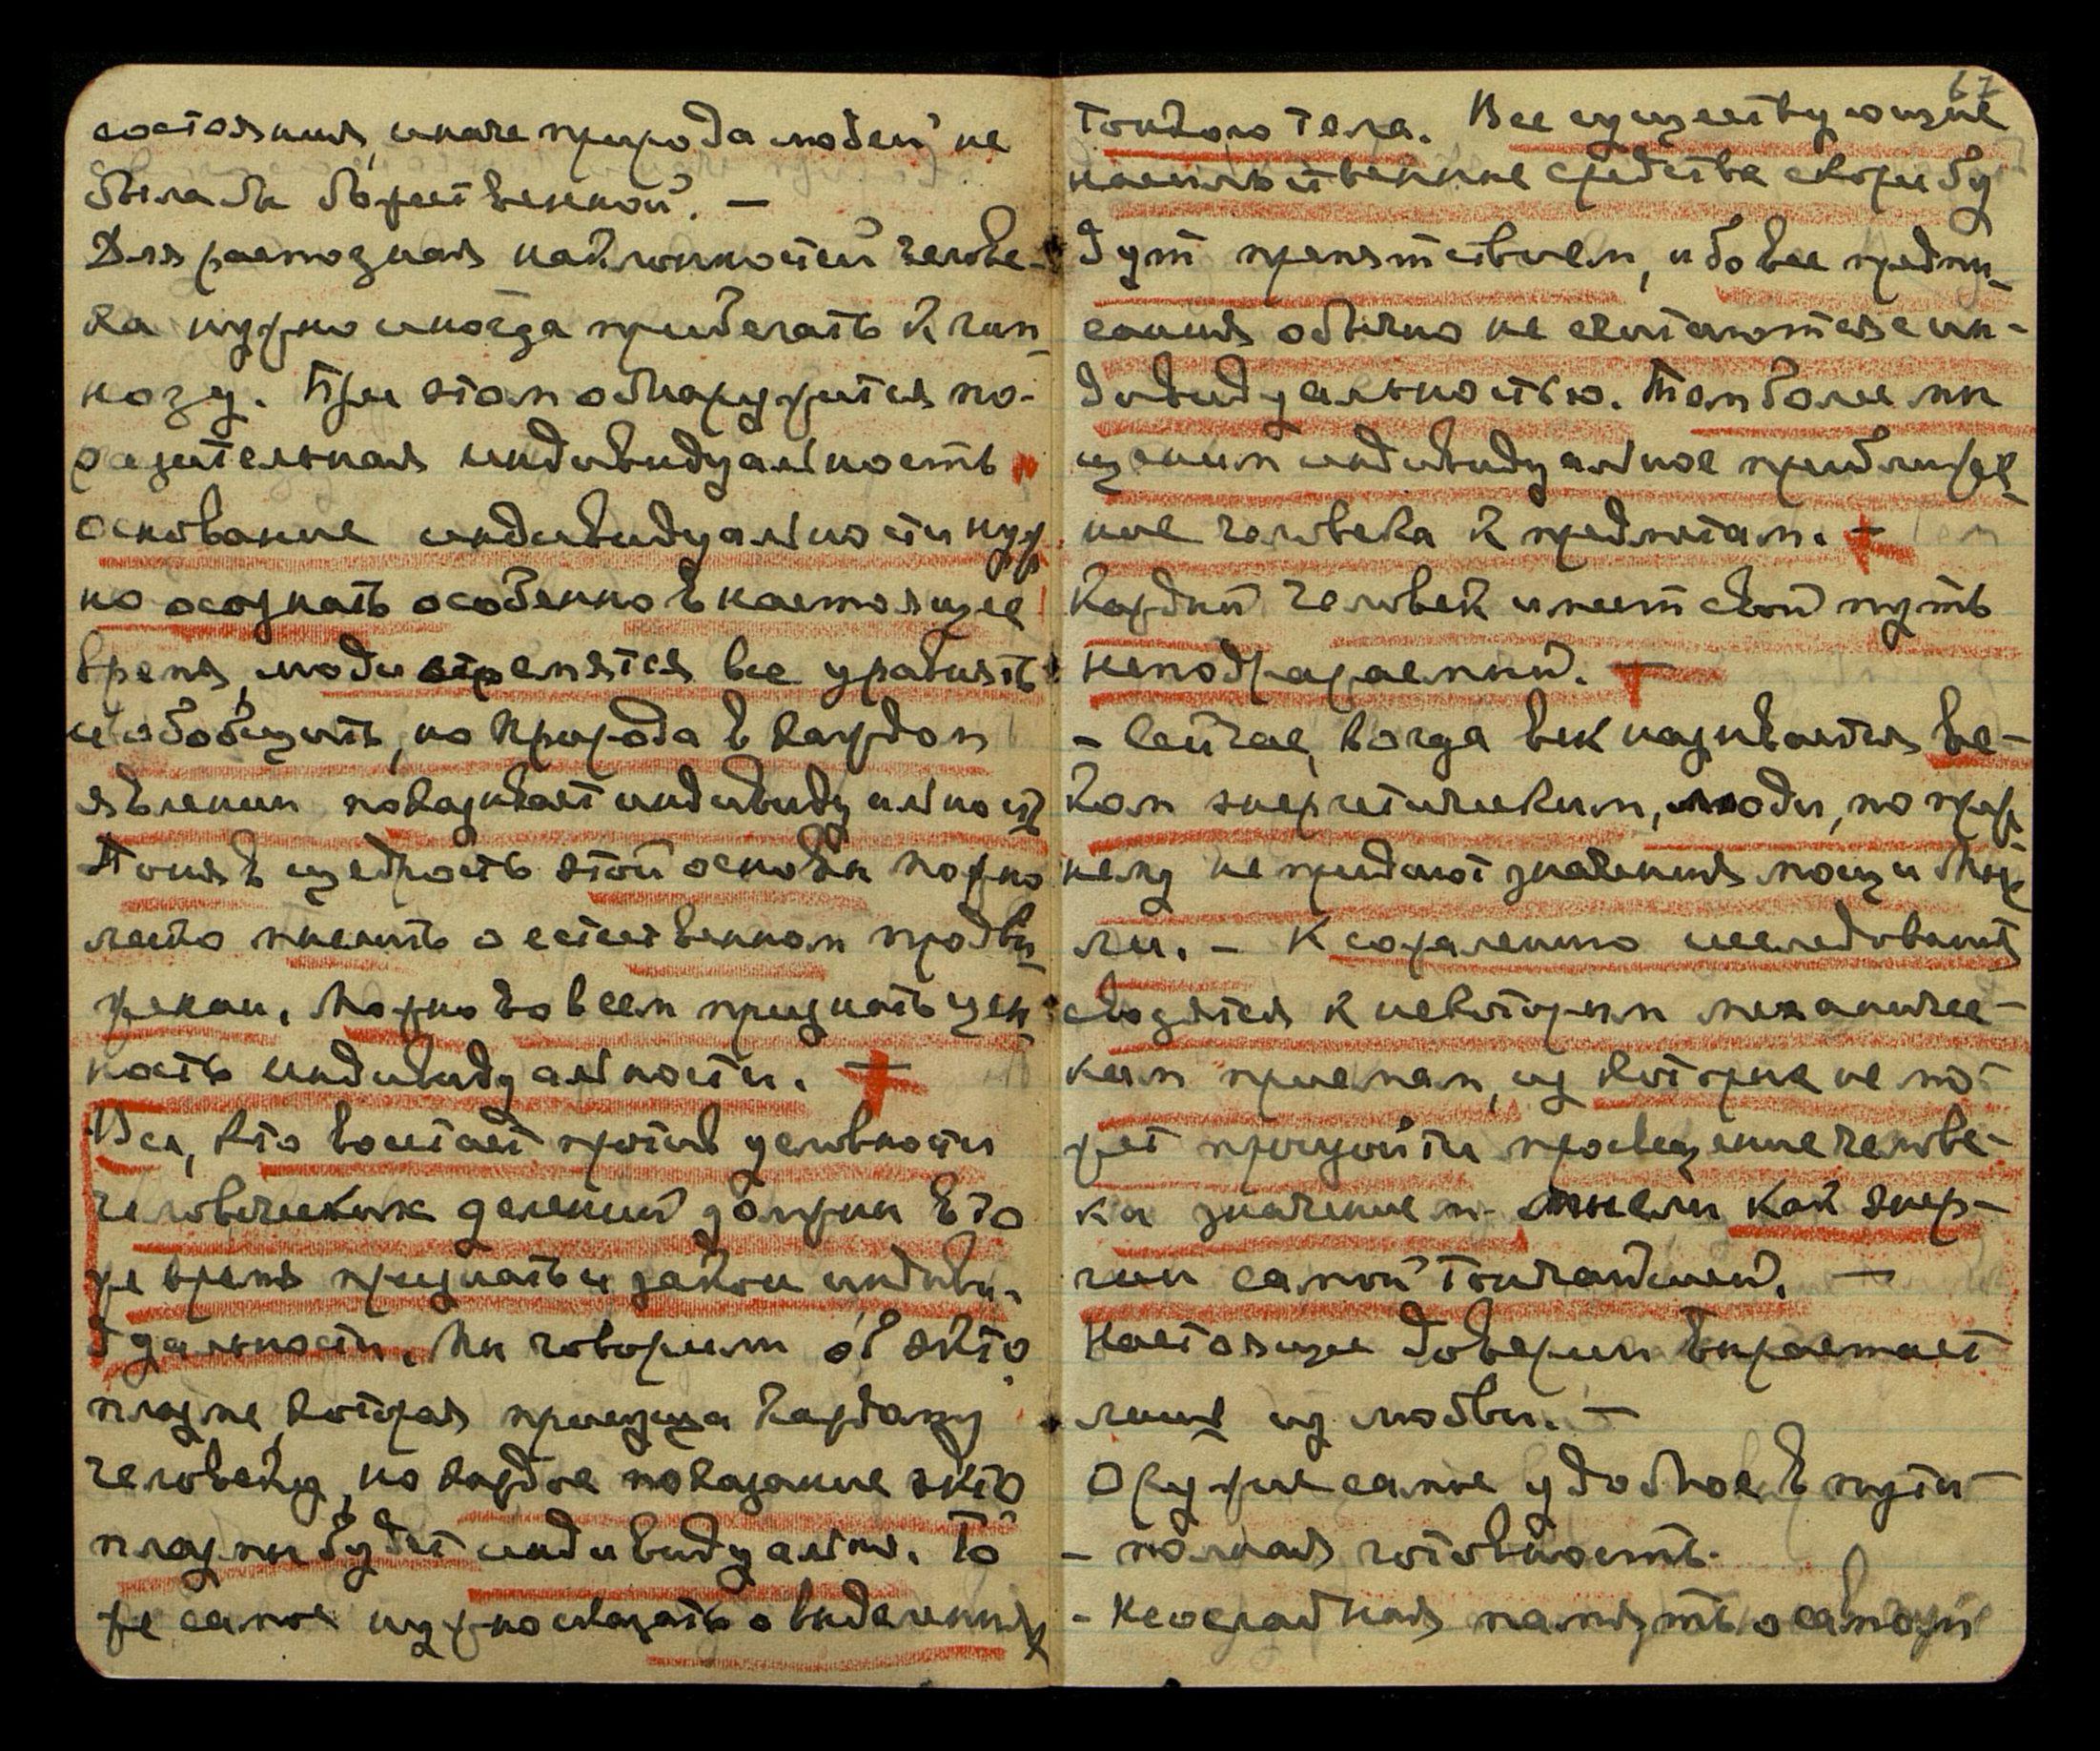 состояния, иначе природа людей не
была бы божественной. –
Для распозная наклонностей челове-
ка нужно иногда прибегать к гип-
нозу. При этом обнаружится по-
разительная индивидуальность
основание индивидуальности нуж
но осознать особенно в настоящее
время, люди стремятся все уравнять
и обобщить, но природа в каждом
явлении показывает индивидуальность
Поняв щедрость этой основы можно
легко мыслить о естественном продви-
жении. Можно во всем признать цен-
ность индивидуальности. +
Все, кто восстает против условности
человеческих делений должны в то
же время признать и закон индиви-
дуальности. Мы говорим об экто
плазме, которая присуща каждому
человеку, но каждое показание экто
плазмы будет индивидуально. То
же самое нужно сказать о видениях
67
Тонкого тела. Все существующие
насильственные средства скоро бу
дут препятствием, ибо все предпи-
сания обычно не считаются с ин-
дивидуальностью. Тем более мы
ценим индивидуальное приближе-
ние человека к предметам. +
Каждый человек имеет свой путь
неподражаемый. +
– Сейчас, когда век называется ве-
ком энергетическим, люди, по преж
нему не придают значения мощи Мыс
ли. – К сожалению исследования
сводятся к некоторым механичес-
ким приемам, из которых не мо-
жет произойти просвещение челове-
ка значением мысли как энер-
гии самой тончайшей. –
Настоящее доверие вырастает
лишь из любви. –
Оружие самое удобное в пути –
– полная готовность.
– Неослабная память о самом